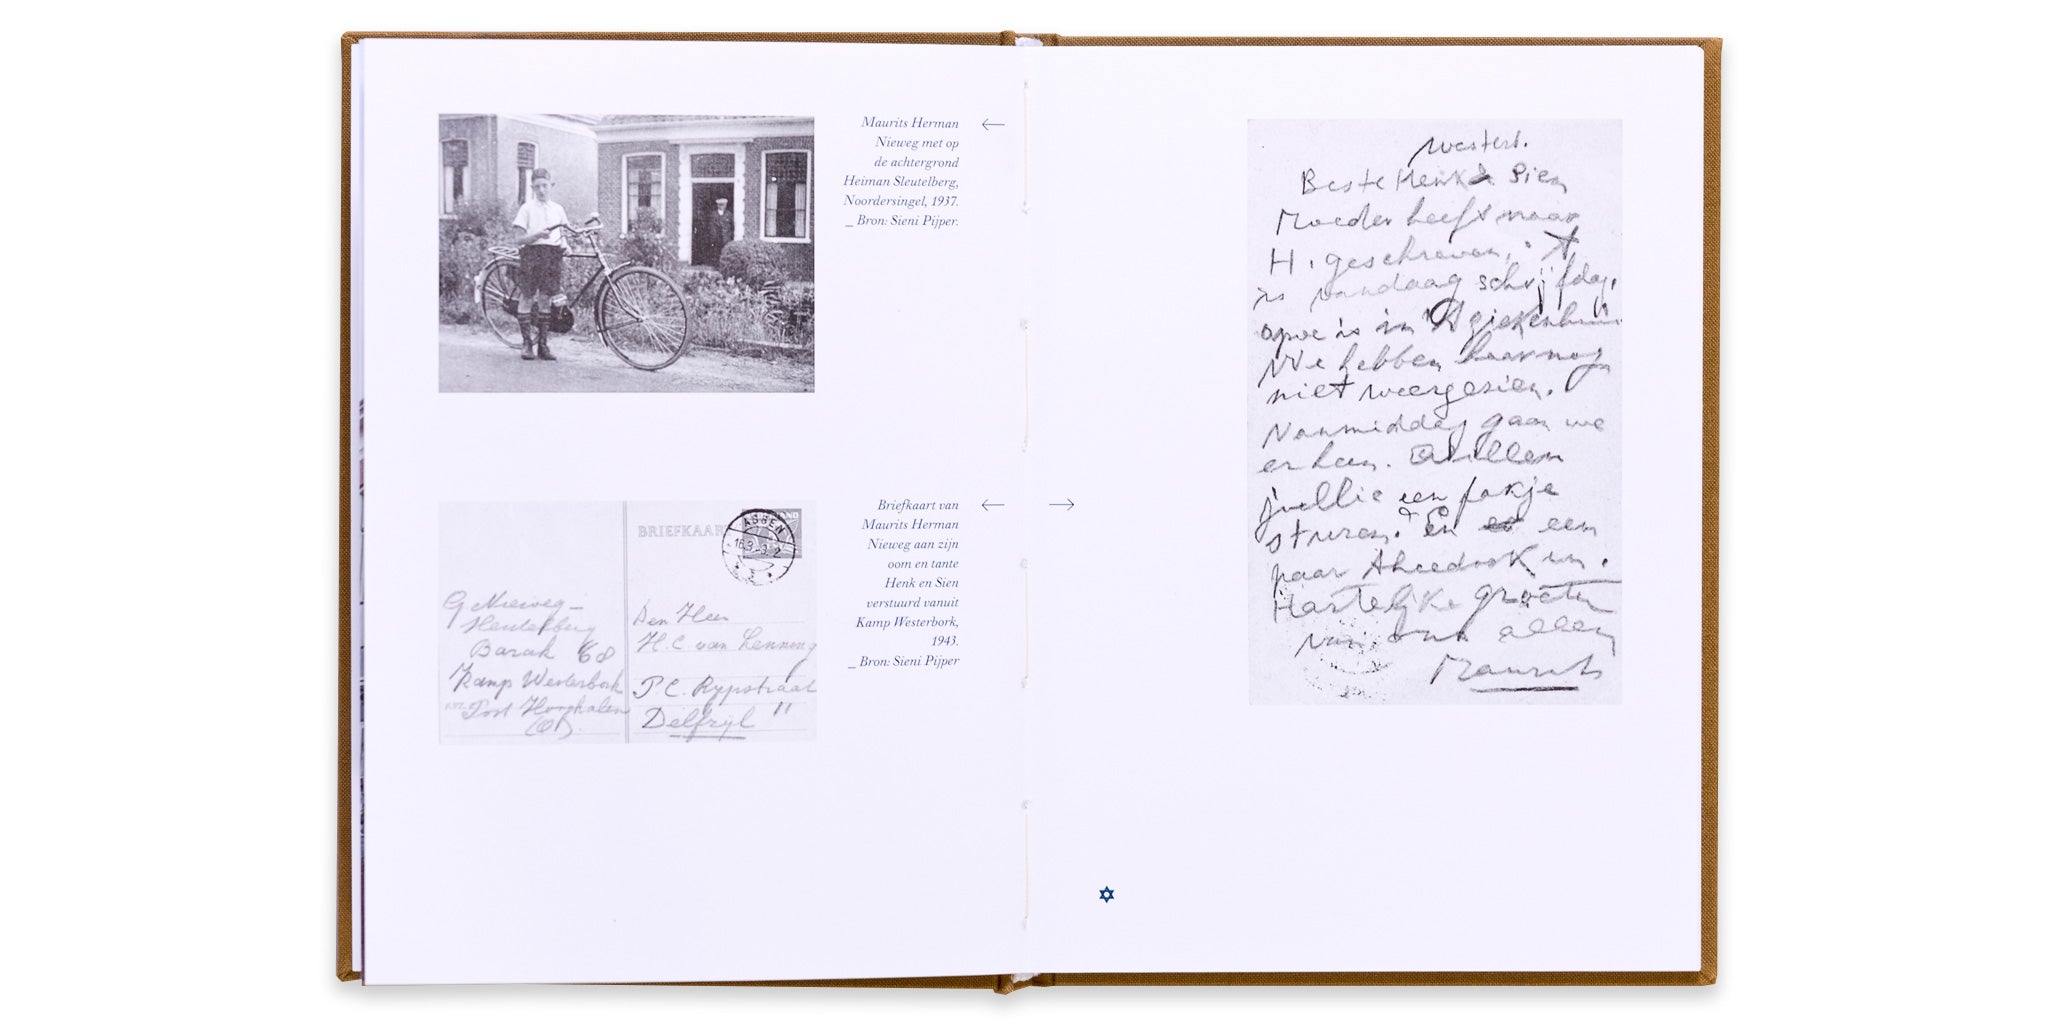 Maurits Herman
Nieweg met op
de achtergrond
Heiman Sleutelberg,
Noordersingel, 1937.
_ Bron: Sieni Pijper.
Briefkaart van
Maurits Herman
Nieweg aan zijn
oom en tante
Henk en Sien
verstuurd vanuit
Kamp Westerbork,
1943.
_ Bron: Sieni Pijper
BRIEFKAAR
ASSEN
G Nieweg –
Barak 68
Kamp Westerbork
Post Hooghalen
(Dr).
Den Heer
H. C. van Lenning
P C. Rypstraat
11
Delfzyl
Westerb.
Beste Henk & Sien
Moeder heeft naar
H. geschreven. 't
is vandaag schrijfdag.
opoe is in 't ziekenhuis
We hebben haar nog
niet weergezien.
Vanmiddag gaan we
er heen.
jullie een pakje
sturen. En een
paar in.
Hartelijke groeten
van ons allen
Maurits